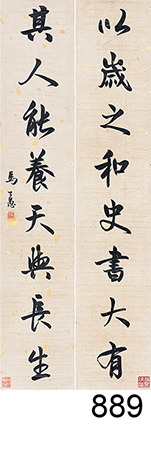 以歲之和史書大有
其人能養天與長生
馬一浮
889